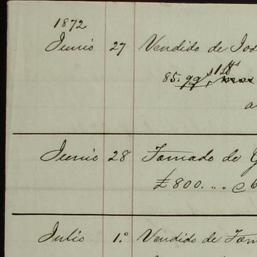 1872
Junio 27 Vendido de Jos
85.
a
Junio 28 Tomado de G
£800....
Julio 1.º Vendido de Tom